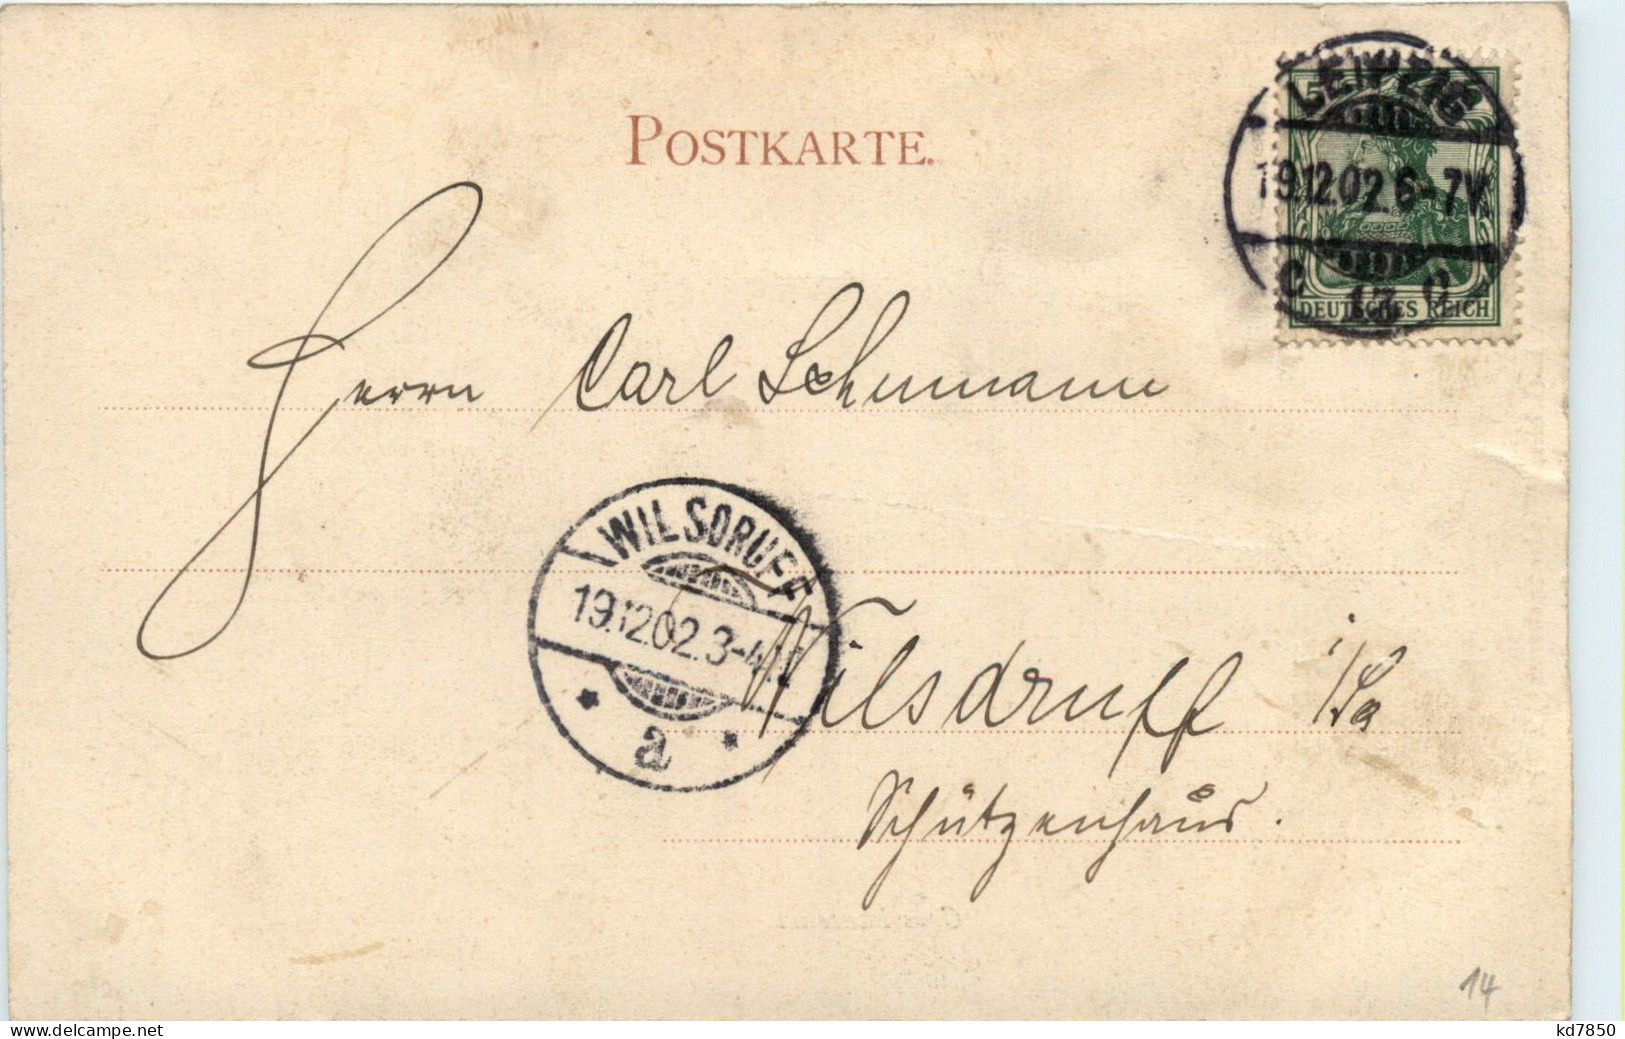 POSTKARTE.
5
LEIPZIG
19.12.02.6-7V.
13
DEUTSCHES REICH
Herrn Carl Schumann
WILSDRUFF
19.12.02.3-4
a
Wilsdruff i/Sa
Schützenhaus.
14
kd7850
www.delcampe.net